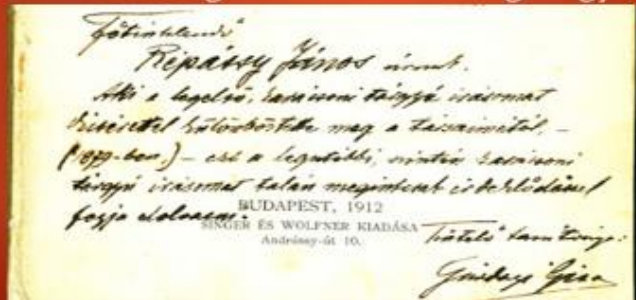 Főtisztelendő
Répássy János úrnak.
Aki a legelső, karácsoni tárgyú irásomat
dicsérettel különböztette meg a társaimétól, –
(1879-ben.) – ezt a legutóbbi, szintén karácsoni
tárgyú irásomat talán megintcsak érdeklődéssel
fogja elolvasni.
BUDAPEST, 1912
SINGER ÉS WOLFNER KIADÁSA
Andrássy-út 10.
Tisztelő tanítványa:
Gárdonyi Géza